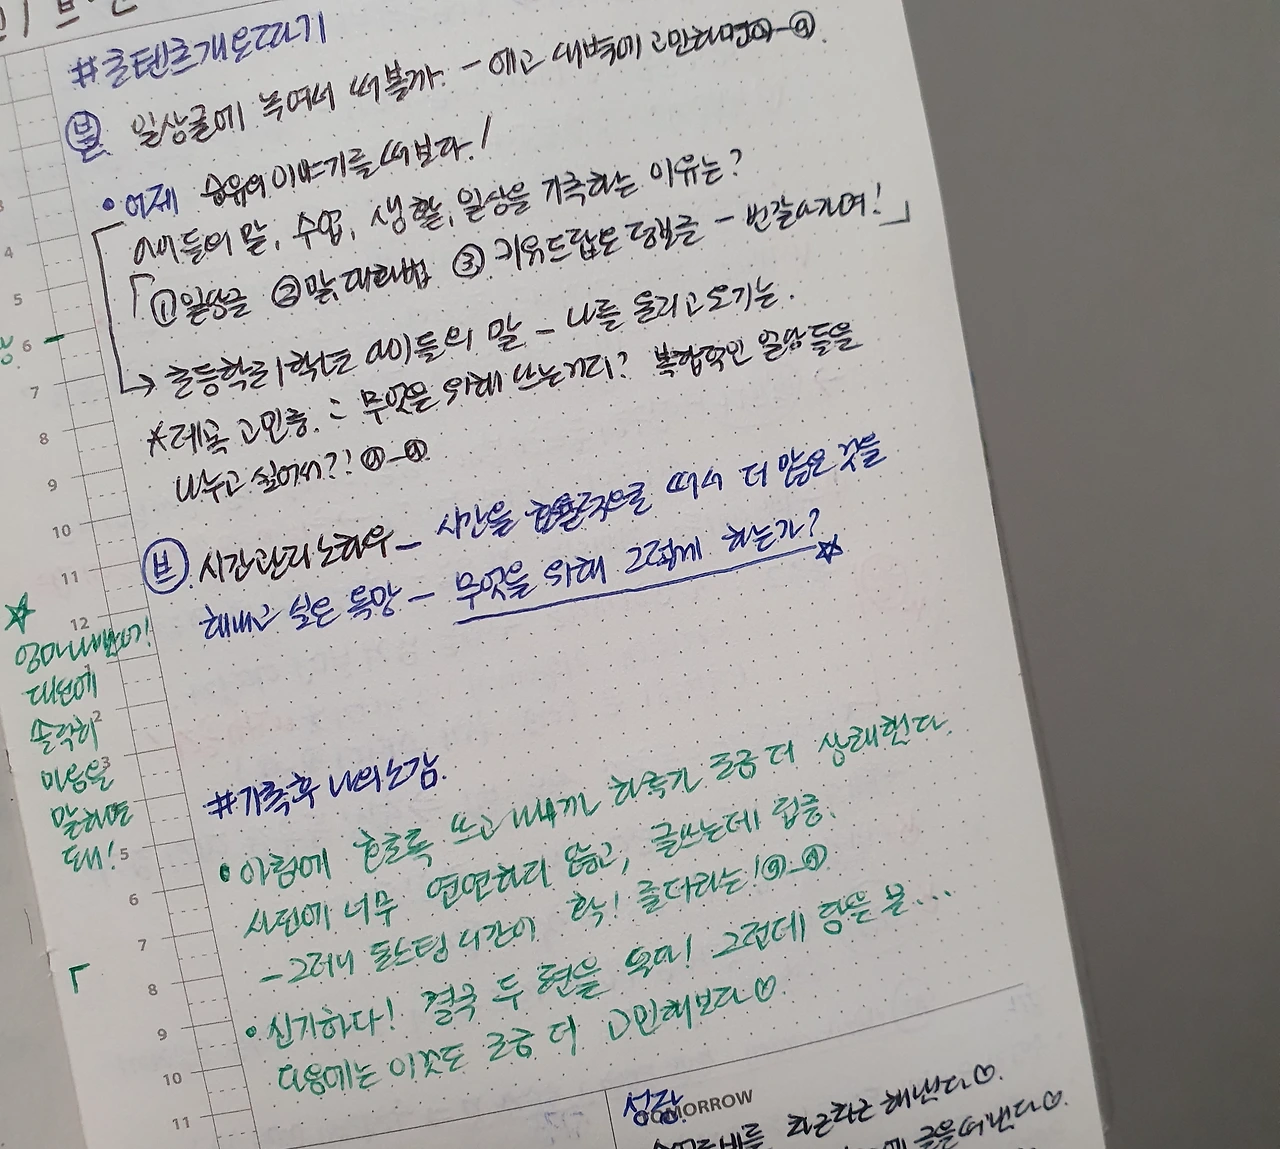 #콘텐츠개요짜기
블 일상글에 녹여서 써볼까. - 에고 새벽에 고민하면서
• 어제 승유의 이야기를 써보다!
아이들의 말, 수업, 생활, 일상을 기록하는 이유는?
「①일상글 ②말, 대화법 ③키워드잡고 정보글 - 번갈아가며!」
→ 초등학교 1학년 아이들의 말 - 나를 울리고 웃기는.
*계속 고민중. : 무엇을 위해 쓰는거지? 복합적인 일상들을
나누고 싶어서?!
브 시간관리노하우 - 시간을 효율적으로 써서 더 많은 것을
해내고 싶은 욕망 - 무엇을 위해 그렇게 하는가?
☆
대신에
솔직히
마음을
말하면
돼!
#기록후 나의소감.
• 아침에 쓰고 나니까 하루가 조금 더 상쾌했다.
사진에 너무 연연하지 않고, 글쓰는데 집중.
- 그러니 포스팅 시간이 확! 줄더라는!
• 신기하다! 결국 두 편을 썼다! 그런데
다음에는 이것도 조금 더 고민해보다♡
성장
TOMORROW
차근차근 해낸다♡.
글을 써낸다♡.
3
4
5
6
7
8
9
10
11
12
1
2
3
5
6
7
8
9
10
11